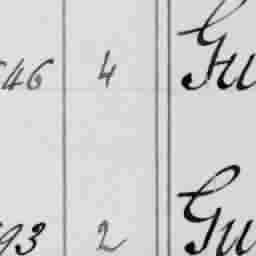 46 4 Gu
93 2 Gu